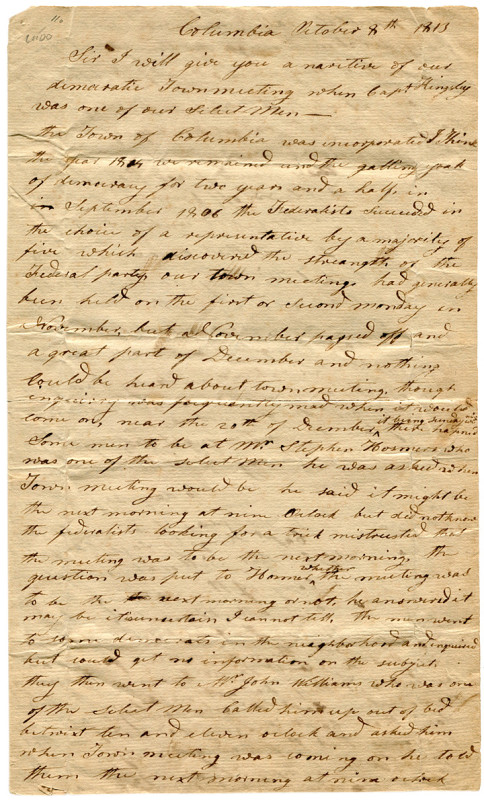 Columbia October 8th 1813
Sir I will give you a naritive of our
democratic Townmeeting when Capt Kingsley
was one of our Select Men —
the Town of Columbia was incorporated I think
the year 1804 we remained und the galling yoak
of democracy for two years and a half in
in September 1806 the Federalists succeeded in
the choice of a representative by a majority of
five which discovered the strength of the
Federal party our town meetings had generally
been held on the first or second monday in
November but all November passed off and
a great part of December and nothing
could be heard about townmeeting though
enquiry was frequently mad when it would
come on, near the 20th of december, it being sunday there hapned
Some men to be at Mr Stephen Hosmers who
was one of the select Men he was asked when
Town meeting would be he said it might be
the next morning at nine oclock but did not know
the federalists looking for a trick mistrusted that
the meeting was to be the next morning the
question was put to Hosmer whether the meeting was
to be the next morning or not, he answered it
may be it uncertain I cannot tell the men went
to some democrats in the neighborhood and enquired
but could get no information on the subject
they then went to Mr John Williams who was one
of the Select Men called him up out of bed
betwixt ten and eleven oclock and asked him
when Town meeting was coming on he told
them the next morning at nine oclock